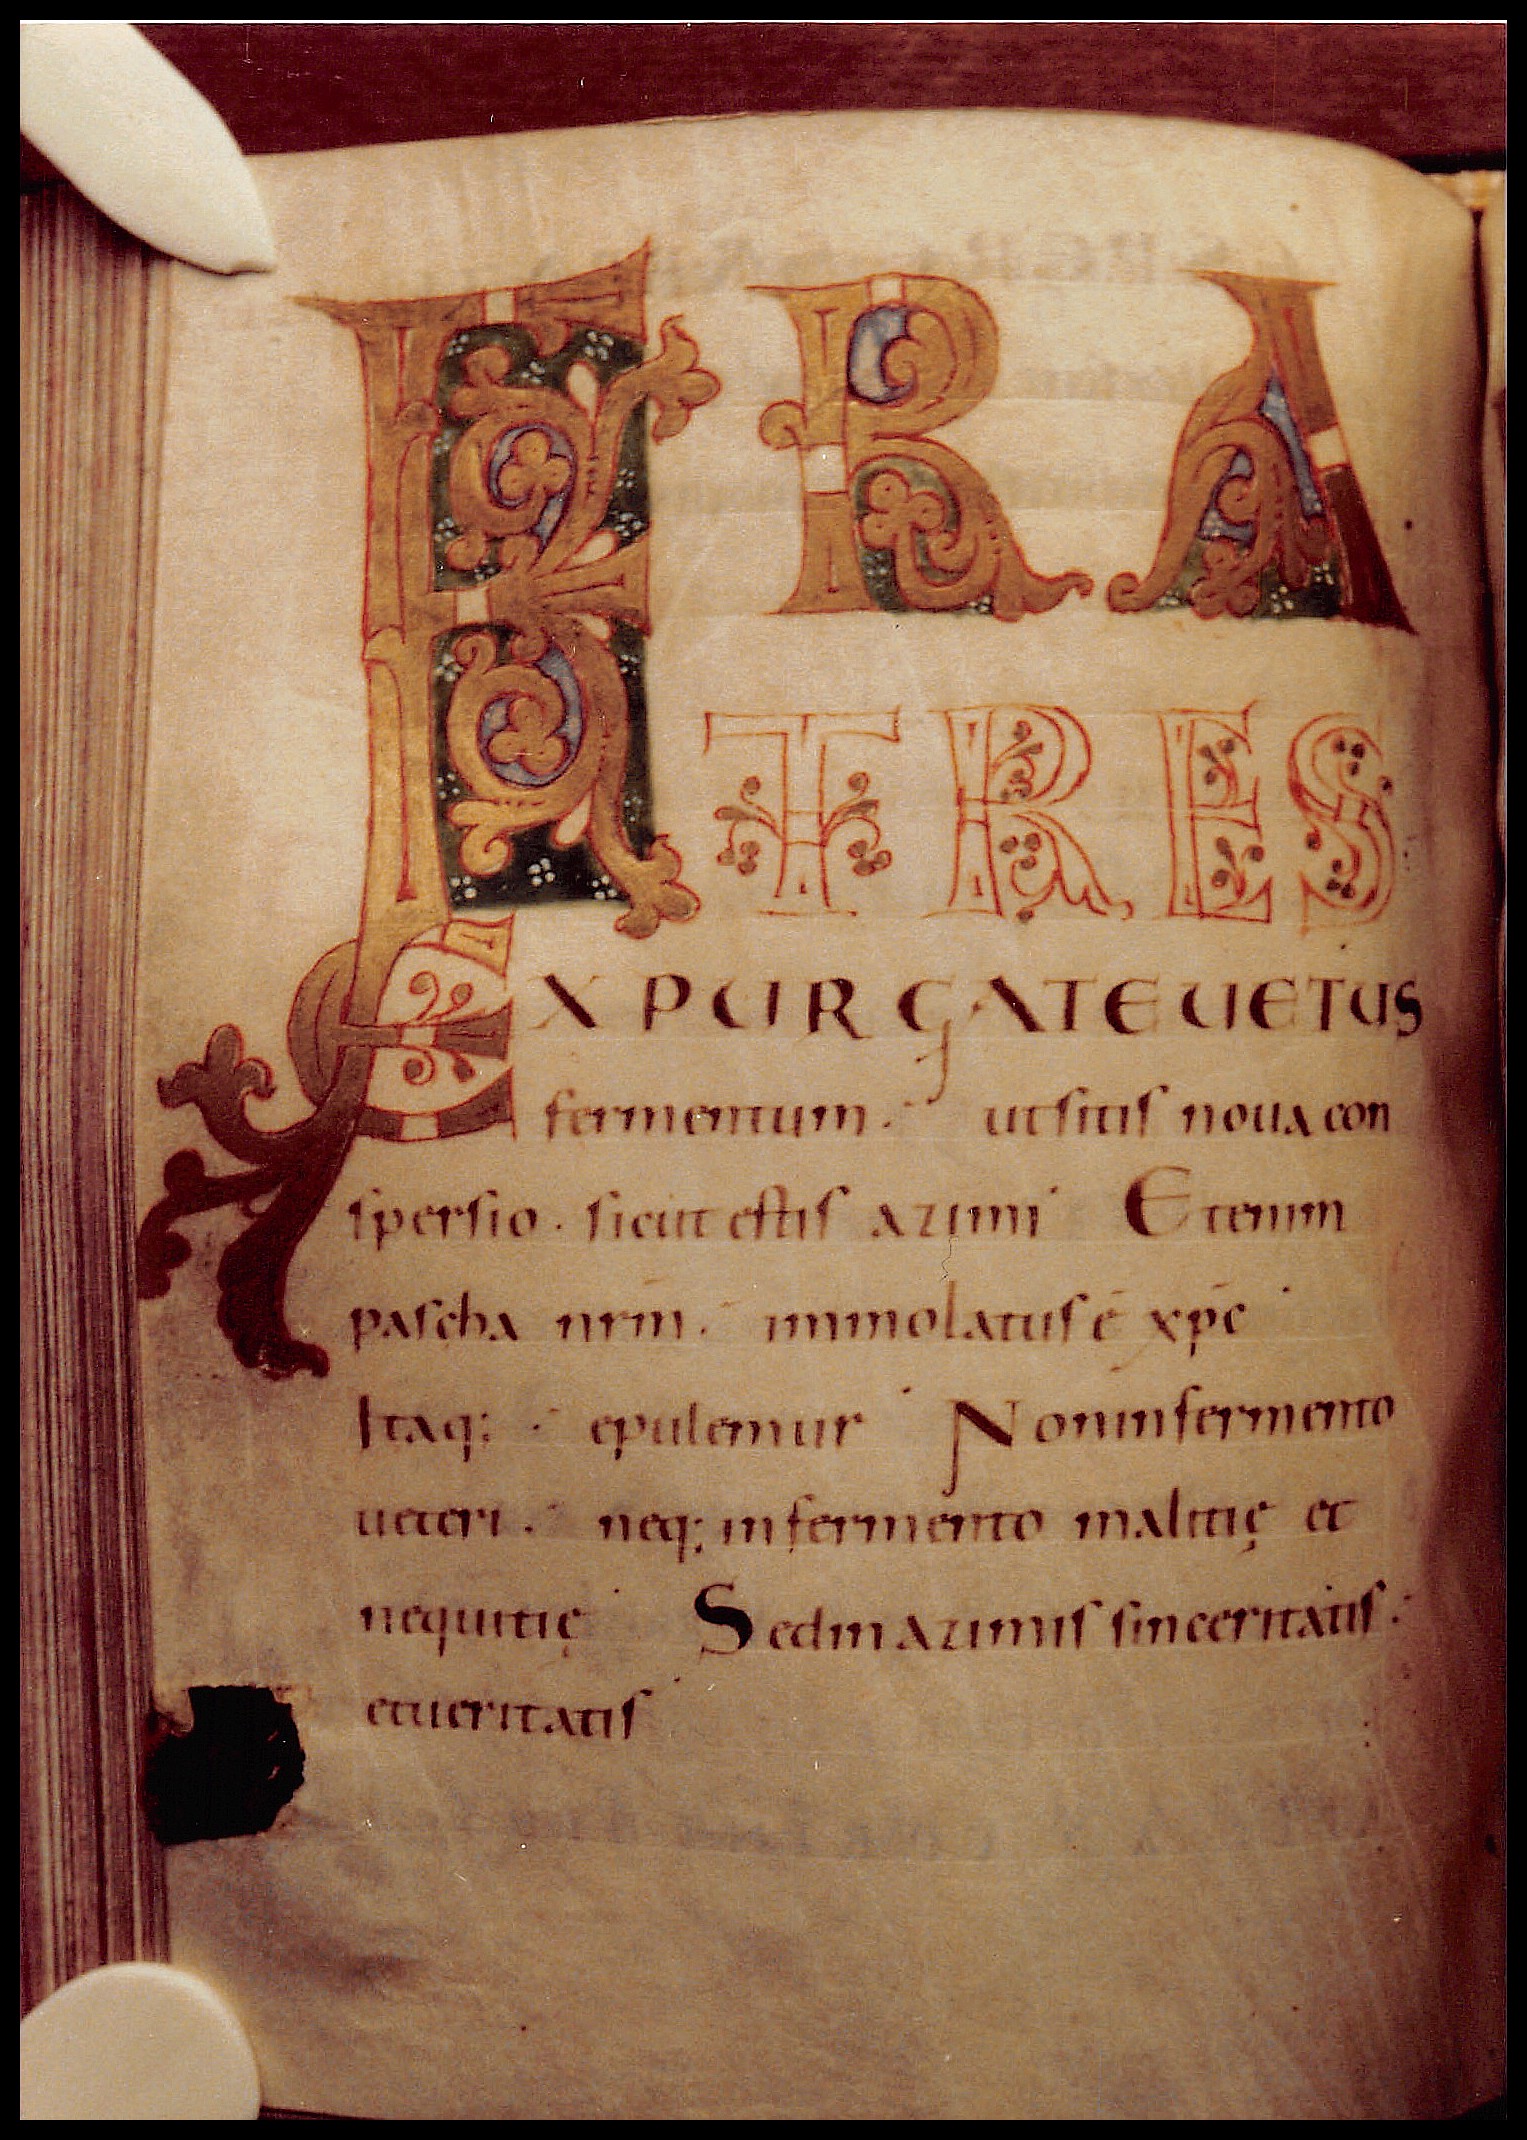 FRA
TRES
EXPURGATE UETUS
fermentum. ut sitis noua con
spersio. sicut estis azimi Etenim
pascha nr̄m. immolatus ē xp̄c
Itaq: epulemur Non in fermento
ueteri. neq: in fermento malitię et
nequitię Sed in azimis sinceritatis:
et ueritatis